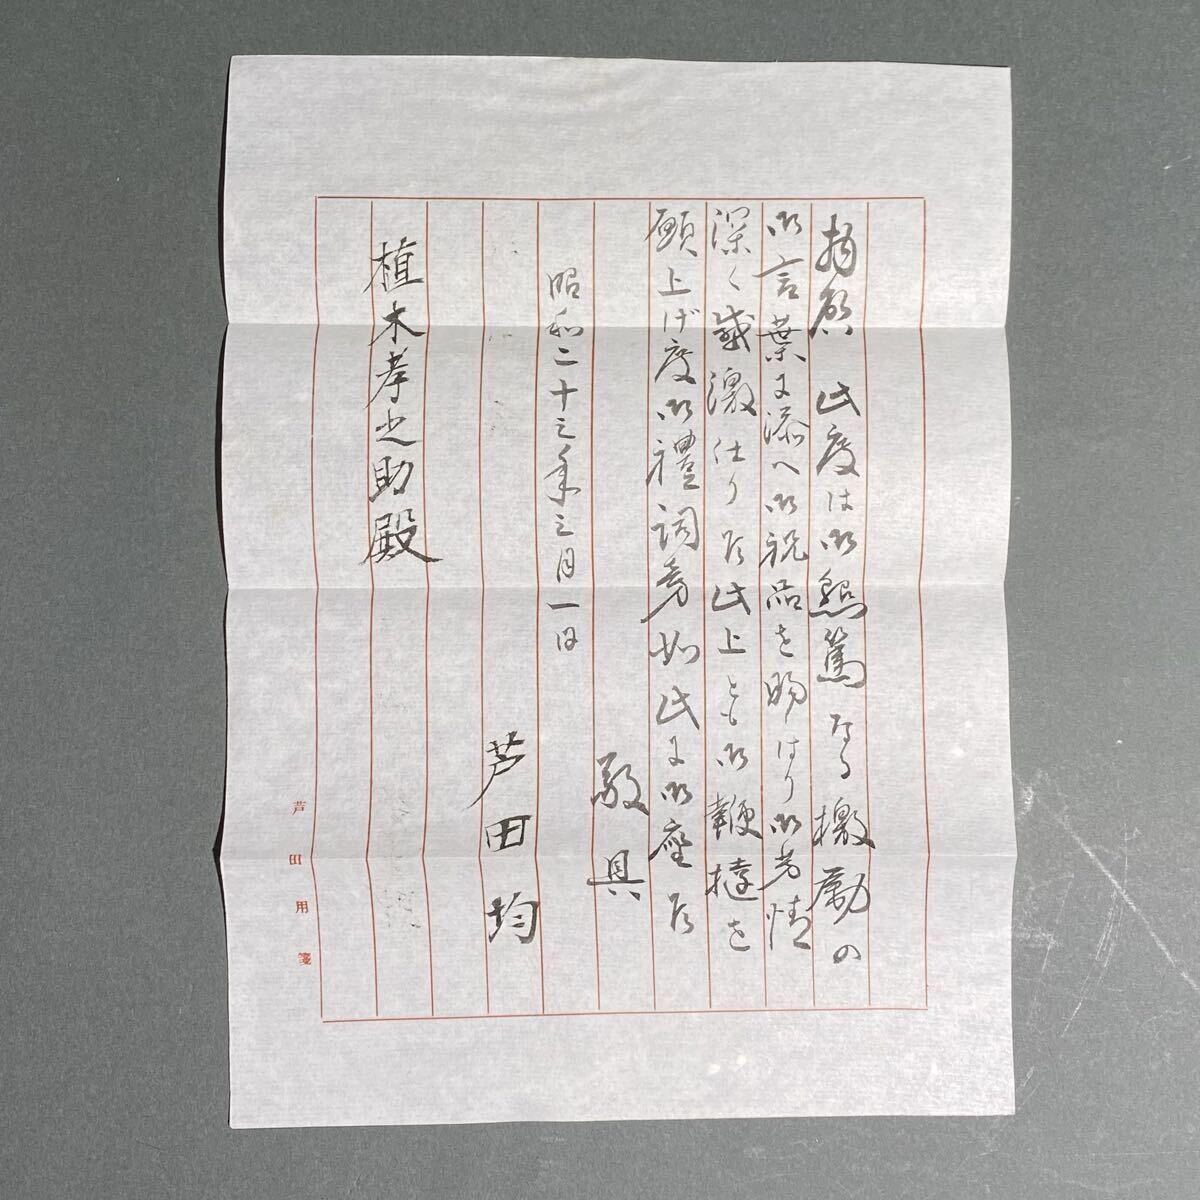 拝啓 此度は御懇篤なる激励の
御言葉に添へ御祝品を賜はり御芳情
深く感激仕り候此上とも御鞭撻を
願上げ度御禮詞旁如此に御座候
敬具
昭和二十三年三月一日
芦田均
植木孝之助殿
芦田用箋